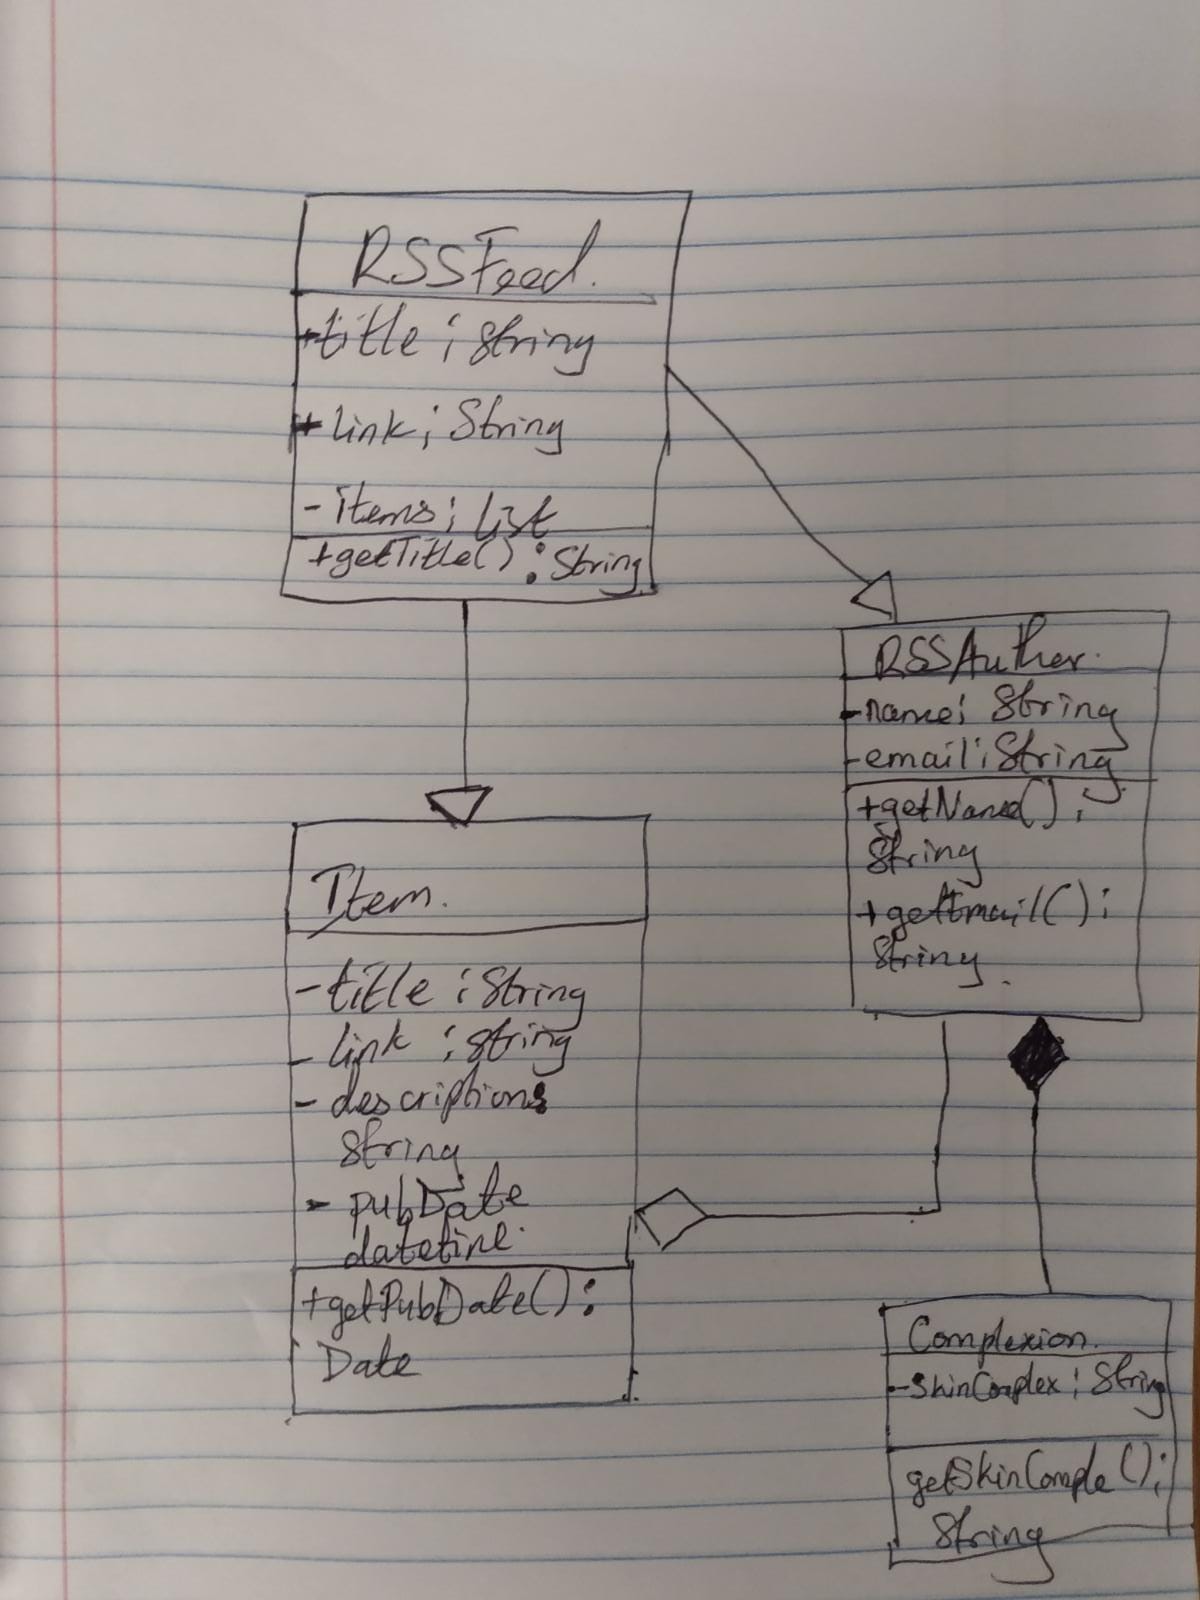 RSSFeed.
+title : String
+ link : String
- items : List
+getTitle() : String
RSSAuther.
-name : String
-email : String
+getName() :
String
+getEmail() :
String.
Item.
-title : String
- link : String
- descriptions
String
- pubDate
datetine.
+getPubDate() :
Date
Complexion.
-SkinComplex : String
getSkinComple() :
String